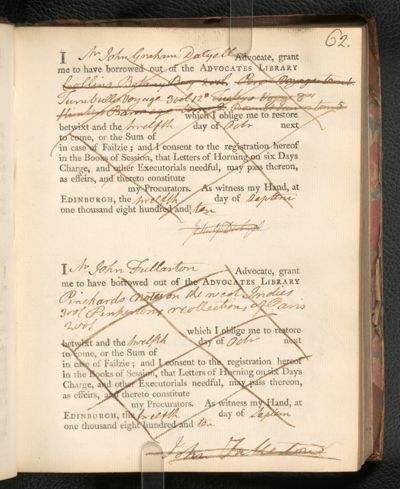 62.
I Mr John Graham Dalyell Advocate, grant
me to have borrowed out of the ADVOCATES LIBRARY
Collins Botany Bay
Turnbulls Voyage 3 vol 12º
which I oblige me to restore
betwixt and the twelfth day of Octr next
to come, or the Sum of
in case of Failzie ; and I consent to the registration hereof
in the Books of Session, that Letters of Horning on six Days
Charge, and other Executorials needful, may pass thereon,
as effeirs, and thereto constitute
my Procurators. As witness my Hand, at
EDINBURGH, the twelfth day of Septem
one thousand eight hundred and ten
I Mr John Fullarton Advocate, grant
me to have borrowed out of the ADVOCATES LIBRARY
Pinckards notes on the west Indies
3 vol Pinkertons recollections of Paris
2 vol
which I oblige me to restore
betwixt and the twelfth day of Octr next
to come, or the Sum of
in case of Failzie ; and I consent to the registration hereof
in the Books of Session, that Letters of Horning on six Days
Charge, and other Executorials needful, may pass thereon,
as effeirs, and thereto constitute
my Procurators. As witness my Hand, at
EDINBURGH, the twelfth day of Septem
one thousand eight hundred and ten
John Fullarton